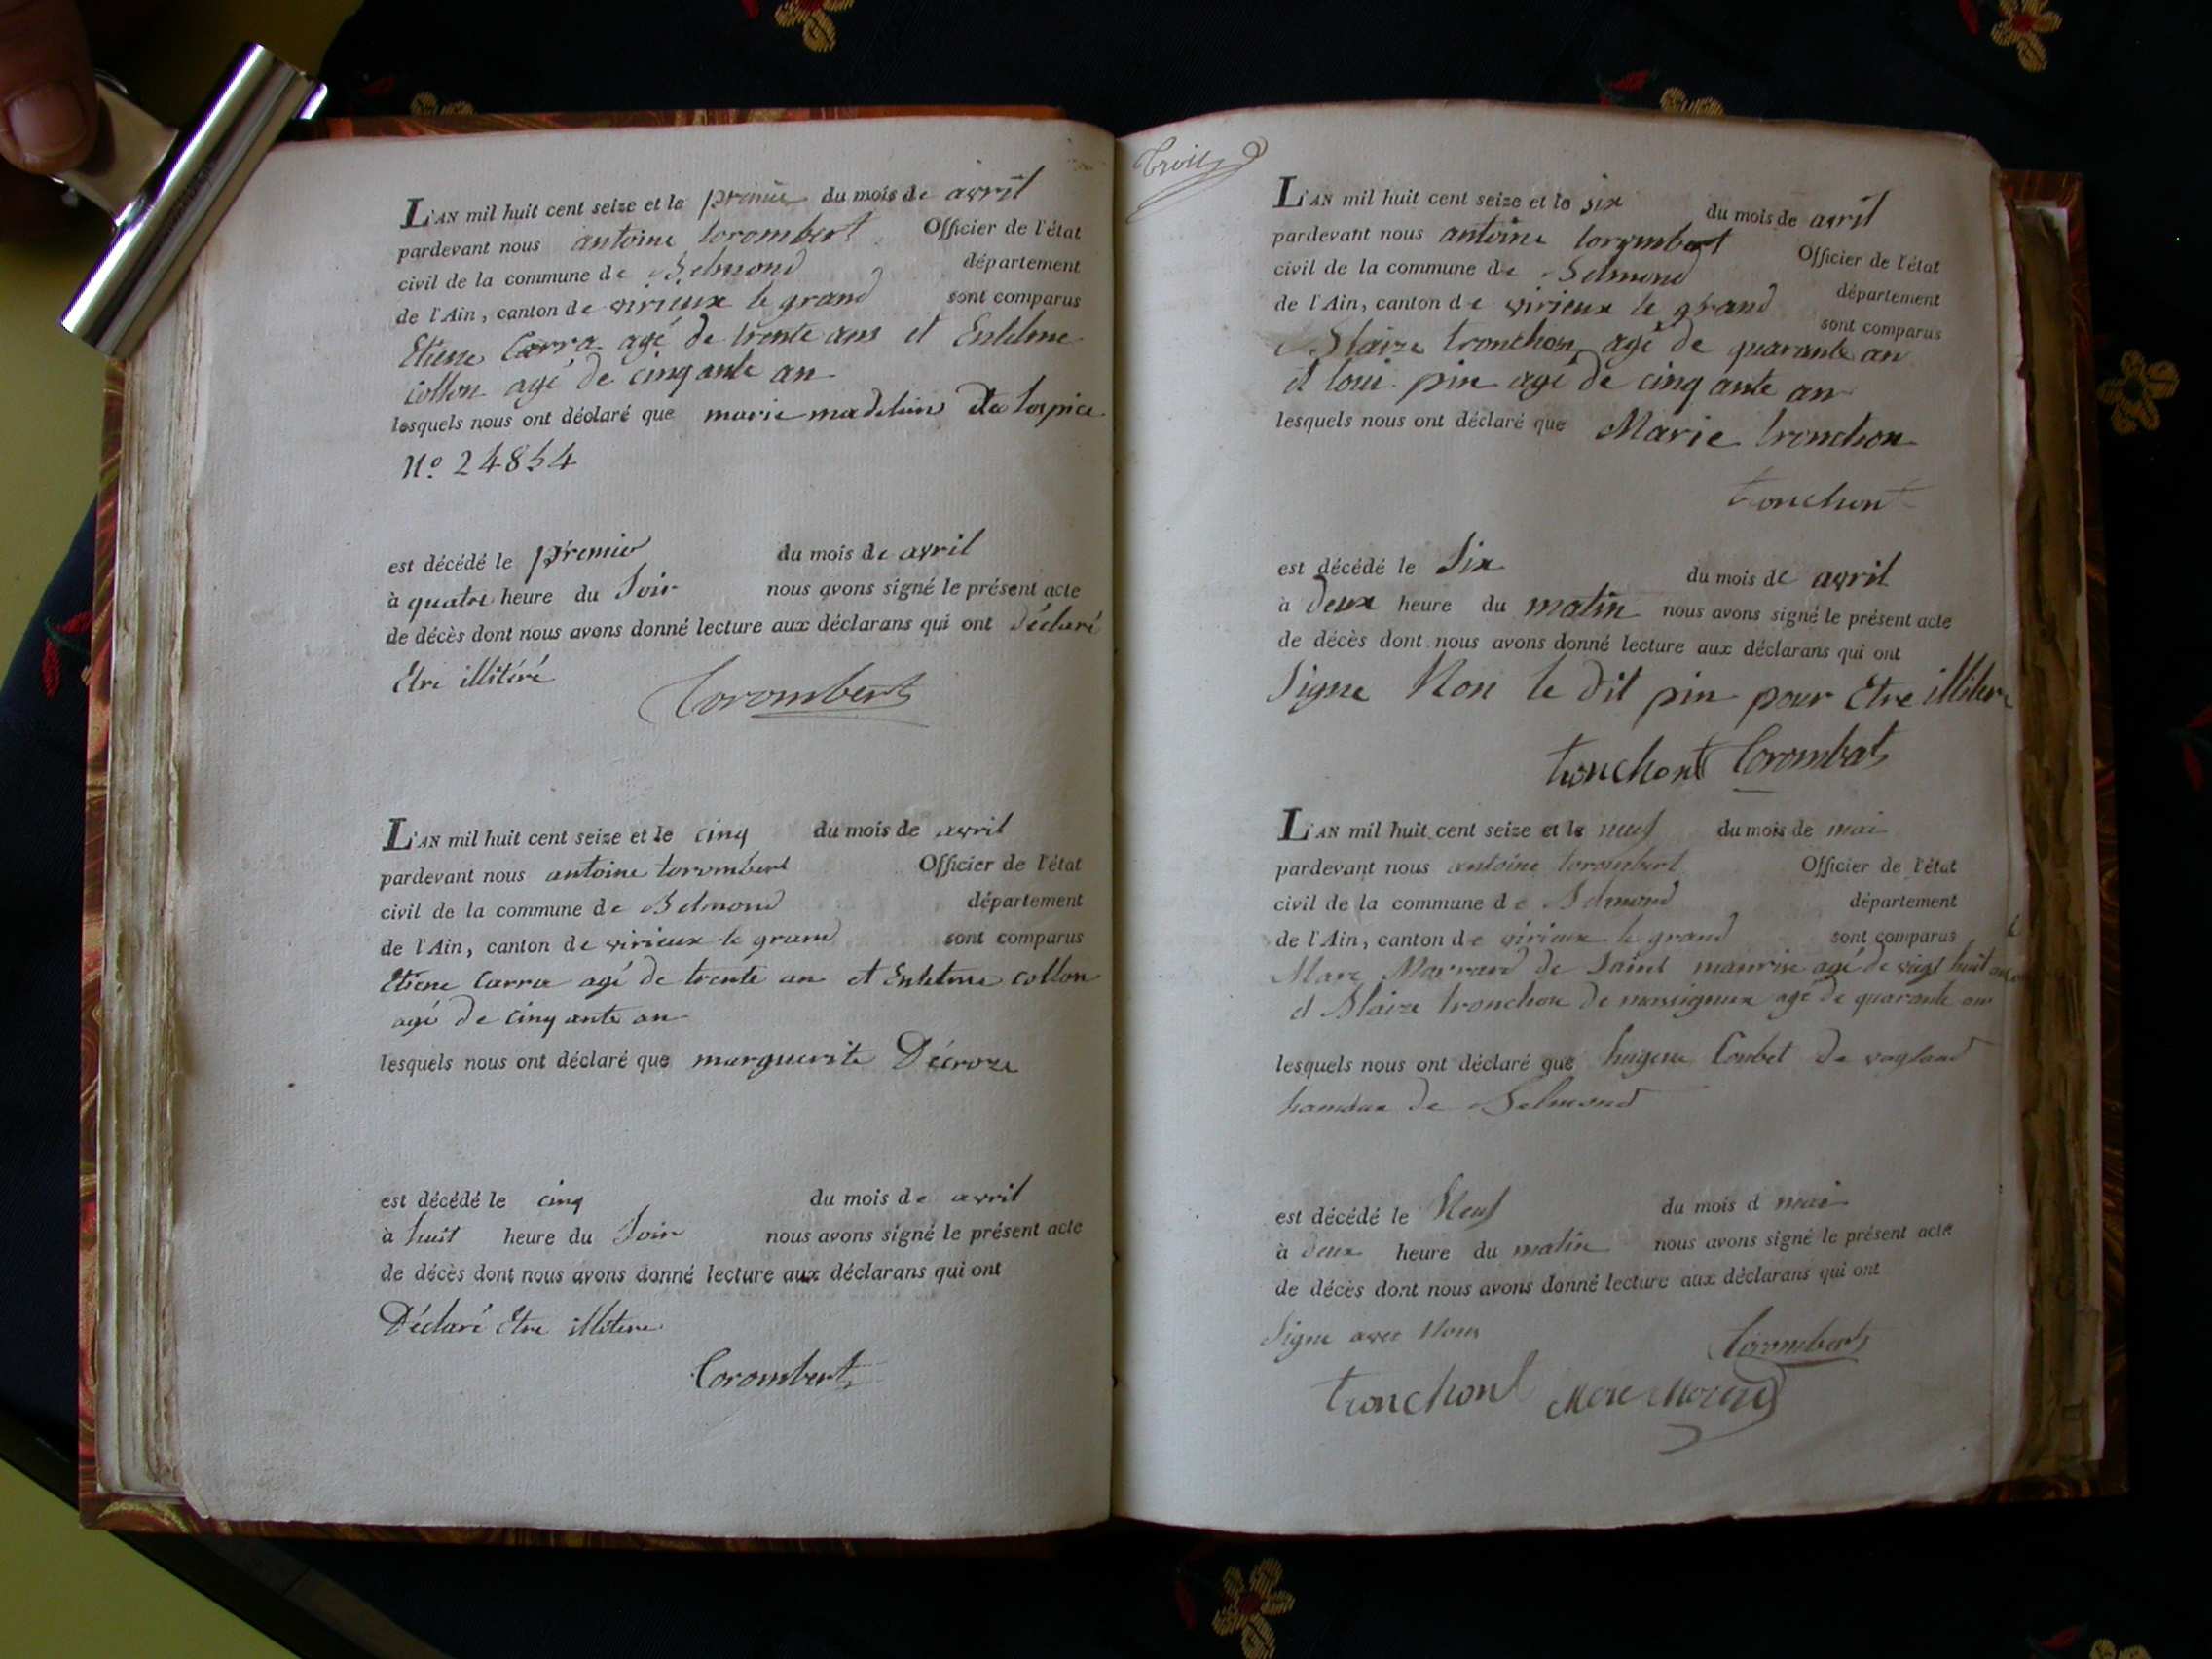 L'AN mil huit cent seize et le premie du mois de avril
pardevant nous antoine torombert Officier de l'état
civil de la commune de Belmond département
de l'Ain, canton de virieux le grand sont comparus
Etiene Carra agé de trente ans et Entelme
Collon agé de cinq ante an
lesquels nous ont déclaré que marie madelein de lospice
N.º 24854
est décédé le premier du mois de avril
à quatre heure du Soir nous avons signé le présent acte
de décès dont nous avons donné lecture aux déclarans qui ont déclaré
Etre illitéré
Torombert
L'AN mil huit cent seize et le cinq du mois de avril
pardevant nous antoine torombert Officier de l'état
civil de la commune de Belmond département
de l'Ain, canton de virieux le grand sont comparus
Etiene Carra agé de trente an et Entelme collon
agé de cinq ante an
lesquels nous ont déclaré que marguerite Décroze
est décédé le cinq du mois de avril
à huit heure du Soir nous avons signé le présent acte
de décès dont nous avons donné lecture aux déclarans qui ont
Déclaré Etre illitere
Torombert
Trois
L'AN mil huit cent seize et le six du mois de avril
pardevant nous antoine torombert Officier de l'état
civil de la commune de Belmond département
de l'Ain, canton de virieux le grand sont comparus
Blaize tronchon agé de quarante an
et loui pin agé de cinq ante an
lesquels nous ont déclaré que Marie tronchon
tronchont
est décédé le Six du mois de avril
à deux heure du matin nous avons signé le présent acte
de décès dont nous avons donné lecture aux déclarans qui ont
Signe Non le dit pin pour Etre illitere
tronchont Torombert
L'AN mil huit cent seize et le neuf du mois de mai
pardevant nous antoine torombert Officier de l'état
civil de la commune de Belmond département
de l'Ain, canton de virieux le grand sont comparus
Marc Morrard de Saint maurise agé de vingt huit an
et Blaize tronchon de massigneux agé de quarante an
lesquels nous ont déclaré que hugene Combet de vogland
hamaux de Belmond
est décédé le Neuf du mois d mai
à deux heure du matin nous avons signé le présent acte
de décès dont nous avons donné lecture aux déclarans qui ont
Signe avec Nous
Torombert
tronchont Marc Morard